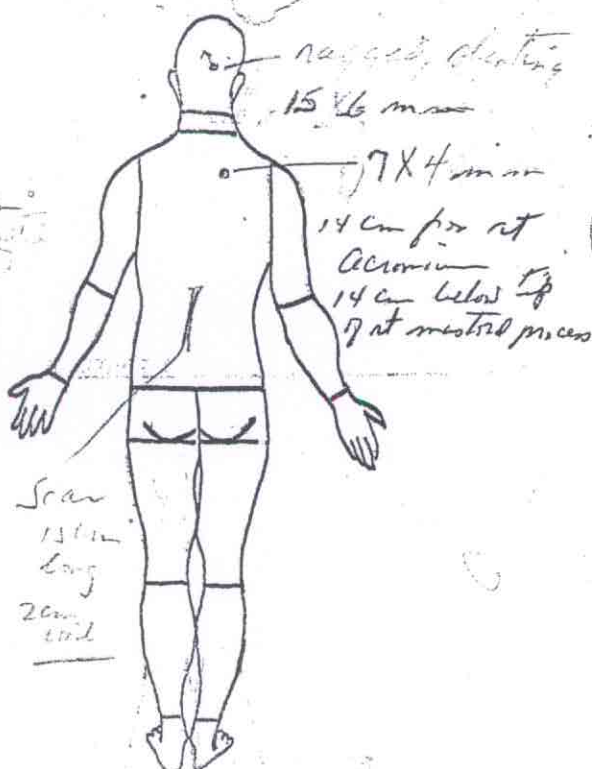 ragged, slanting
15 X 6 mm
7 X 4 mm
14 cm from rt
acromium
14 cm below tip
of rt mastoid process
Scar
15 cm
long
2 cm